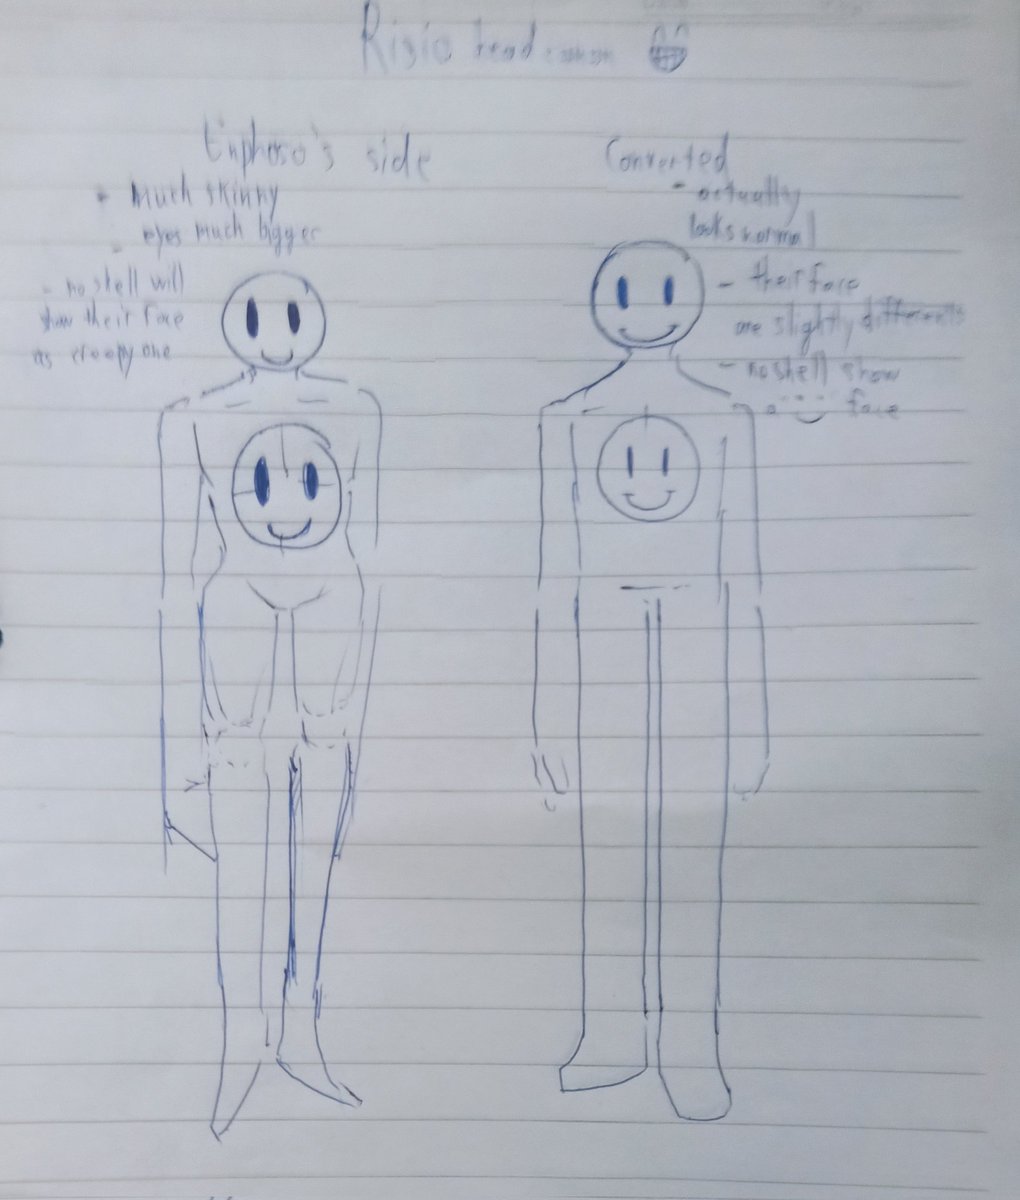 Risio head canon
Enphoso's side
- Much skinny
- eyes much bigger
- no shell will
show their face
as creepy one
Converted
- actually
looks normal
- their face
are slightly differents
- no shell show
a face